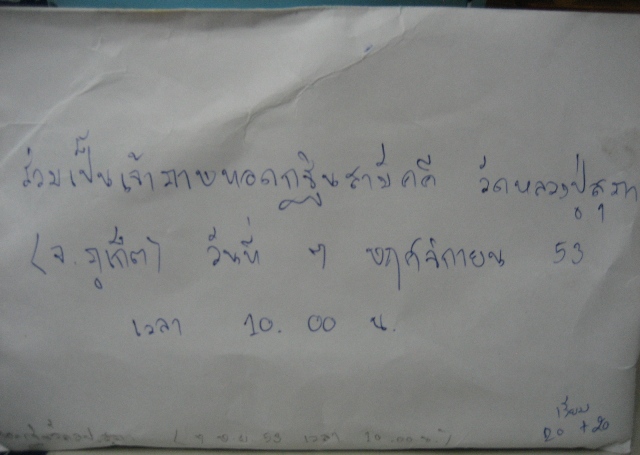 ร่วมเป็นเจ้าภาพทอดกฐินสามัคคี วัดหลวงปู่สุภา
(จ.ภูเก็ต) วันที่ ๗ พฤศจิกายน 53
เวลา 10.00 น.
20 + 20
( ๗ พ.ย 53 เวลา 10.00 น.)